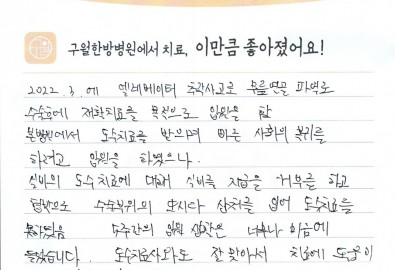 구월한방병원에서 치료, 이만큼 좋아졌어요!
2022. 3. 에 엘리베이터 추락사고로 무릎연골 파열로
수술후에 재활치료를 목적으로 입원을 함
본병원에서 도수치료를 받으며 빠른 사회의 복귀를
하려고 입원을 하였으나.
도수치료에 대해 지급을 거부를 하고
수술부위의 상처를 입어 도수치료를
못하였음 5주간의 입원 너무나
도수치료사와도 잘 맞아서 치료에 도움이